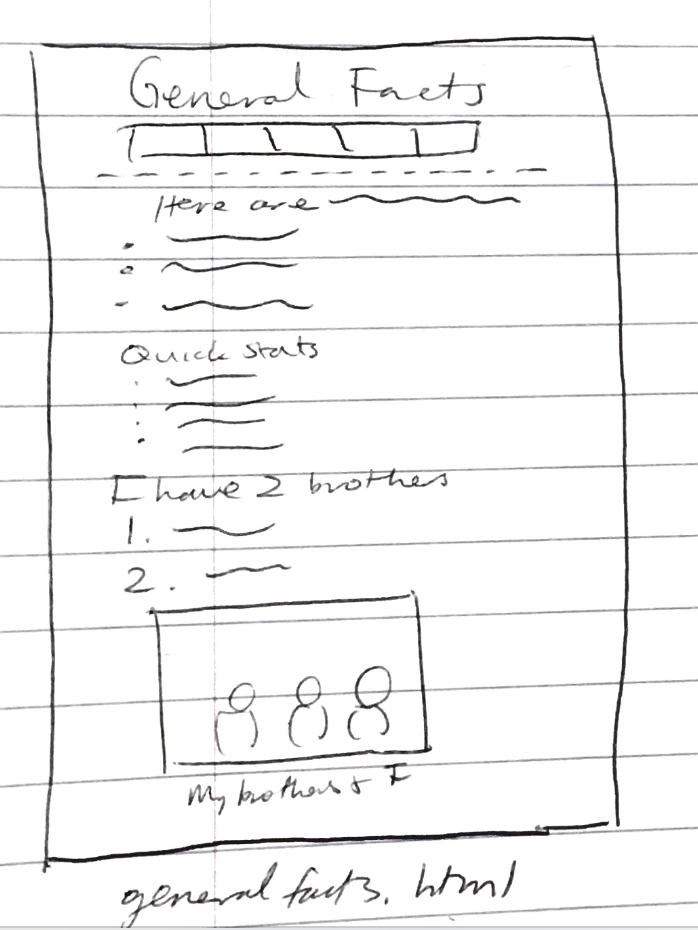 General Facts
Here are
Quick stats
I have 2 brothers
1.
2.
My brothers & I
general facts. html